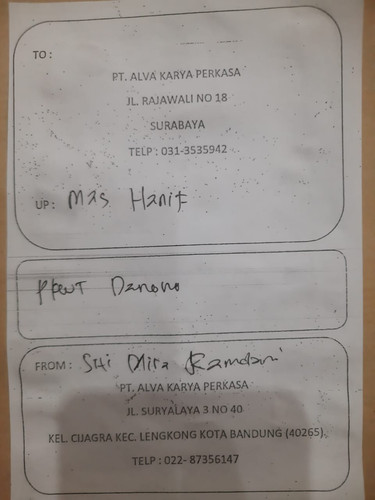 TO :
PT. ALVA KARYA PERKASA
JL. RAJAWALI NO 18
SURABAYA
TELP : 031-3535942
UP : Mas Hanif
Danono
FROM : Siti Mira Ramdani
PT. ALVA KARYA PERKASA
JL. SURYALAYA 3 NO 40
KEL. CIJAGRA KEC. LENGKONG KOTA BANDUNG (40265).
TELP : 022- 87356147